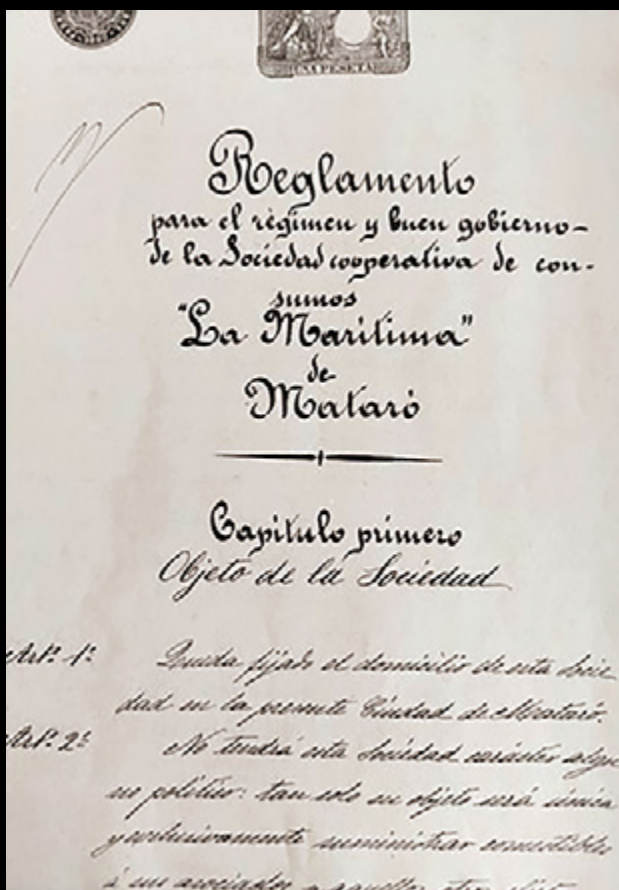 UNA PESETA
Reglamento
para el règimen y buen gobierno-
de la Sociedad cooperativa de con-
sumos
"La Marítima"
de
Mataró
Capitulo primero
Objeto de la Sociedad
Art.º 1º Queda fijado el domicilio de esta Socie
dad en la presente Ciudad de Mataró.
Art.º 2º No tendrá esta Sociedad carácter algu
no político: tan solo su objeto será única
y exclusivamente suministrar comestibles
á sus asociados